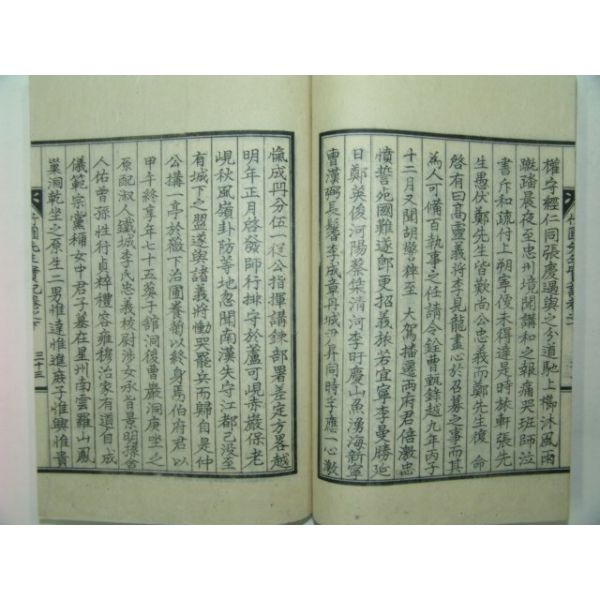 權守經仁同張慶遇與之分道馳上櫛沐風雨
蹝踏晨夜至忠州境聞講和之報痛哭班師泣
書斥和疏付上朔寧倭未得達是時旅軒張先
生愚伏鄭先生皆歎尚公忠義而鄭先生復命
啓有曰高靈義將李見龍盡心於召募之事而其
爲人可備百執事之任請令銓曹甄錄越九年丙子
十二月又聞胡變猝至大駕播遷兩府君倍激忠
憤誓死國難遂卽更招義旅芳宜寧李曼勝延
日鄭英俊河陽蔡㷜清河李時慶山魚湧海新寧
曺漢弼長鬐李成章丹城尹昇同時亨應一心激
愾成丹分伍一從公指揮講鍊部署差定方畧越
明年正月啓發師行排守於蘆可峴赤巖保老
峴秋風嶺卦防等地忽聞南漢失守江都已沒至
有城下之盟遂與諸義將慟哭罷兵而歸自是仲
公構一亭於繳下治圃養菊以終身焉伯府君以
甲午終享年七十五英子舘洞後曺巖洞庚坐之
原配淑人鐵城李氏忠義校尉涉女承旨景明孫當
人佑曾孫性行貞粹禮容雍穆治家有道自成
儀範宗黨稱女中君子墓在星州南雲羅山鳳
巢洞乾坐之原生二男惟達惟進庶子惟興惟貴
三十三